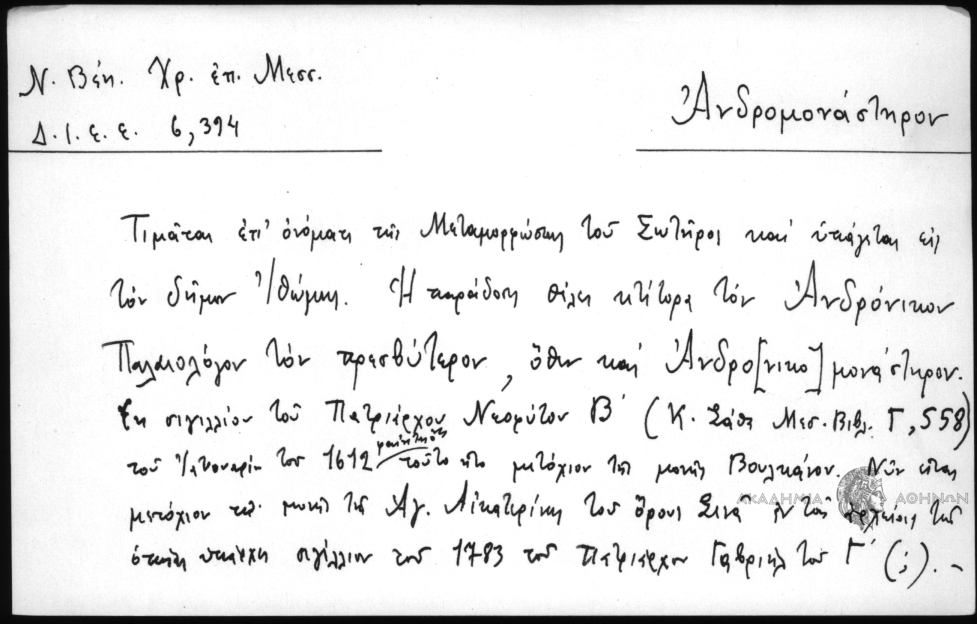 Ν. Βέη. Χρ. ἐπ. Μεσσ.
Δ. Ι. Ε. Ε. 6, 394
Ἀνδρομονάστηρον
Τιμᾶται ἐπ' ὀνόματι τῆς Μεταμορφώσεως τοῦ Σωτῆρος καὶ ὑπάγεται εἰς
τὸν δῆμον Ἰθώμης. Ἡ παράδοσις θέλει κτίτορα τὸν Ἀνδρόνικον
Παλαιολόγον τὸν πρεσβύτερον, ὅθεν καὶ Ἀνδρο[νικο]μονάστηρον.
Ἐκ σιγιλλίου τοῦ Πατριάρχου Νεοφύτου Β' (Κ. Σάθα Μεσ. Βιβλ. Γ, 558)
τοῦ Ἰανουαρίου τοῦ 1612 τοῦτο ἦτο μετόχιον τῆς μονῆς Βουλκάνου. Νῦν εἶναι
μετόχιον τῆς μονῆς τῆς Ἁγ. Αἰκατερίνης τοῦ ὄρους Σινᾶ ἐν τοῖς ἀρχείοις τῆς
ὁποίας ὑπάρχει σιγίλλιον τοῦ 1783 τοῦ Πατριάρχου Γαβριὴλ τοῦ Γ' (;). –
ΑΚΑΔΗΜΙΑ ΑΘΗΝΩΝ